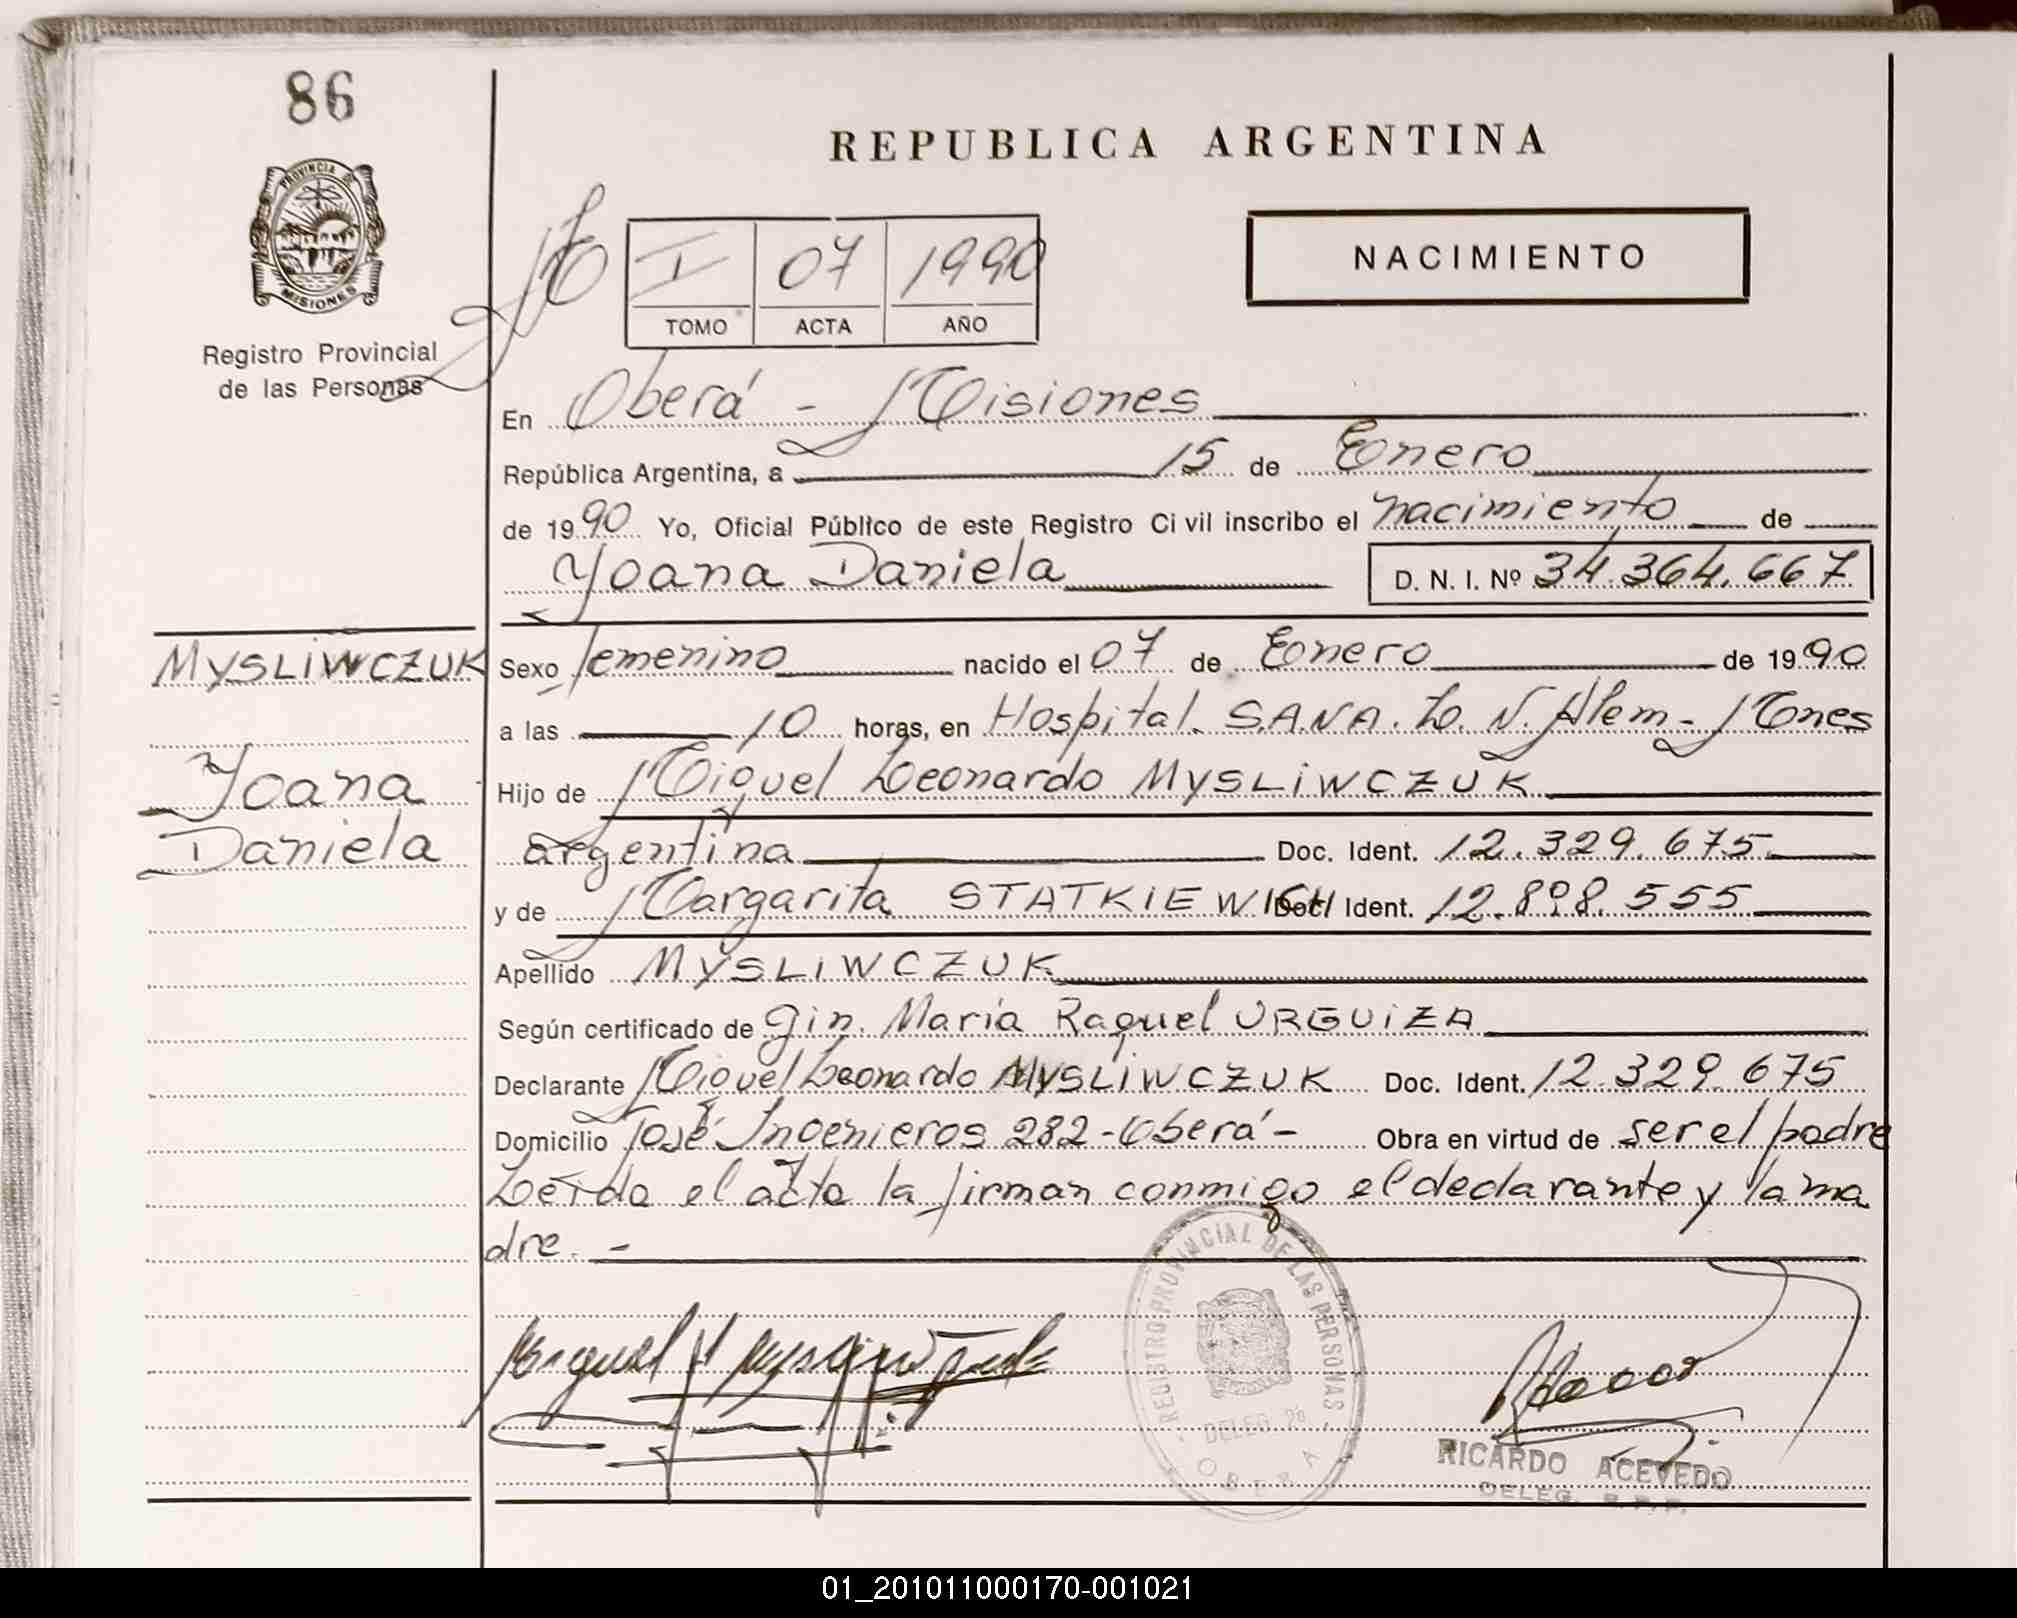 86
REPUBLICA ARGENTINA
PROVINCIA DE
MISIONES
Registro Provincial
de las Personas
I 07 1990
TOMO ACTA AÑO
NACIMIENTO
En Oberá - Misiones
República Argentina, a 15 de Enero
de 1990 Yo, Oficial Público de este Registro Civil inscribo el nacimiento de
Yoana Daniela D. N. I. Nº 34.364.667
MYSLIWCZUK
Yoana
Daniela
Sexo femenino nacido el 07 de Enero de 1990
a las 10 horas, en Hospital S.A.N.A. L. N. Alem - Mones
Hijo de Miguel Leonardo MYSLIWCZUK
argentina Doc. Ident. 12.329.675
y de Margarita STATKIEWICH Doc. Ident. 12.898.555
Apellido MYSLIWCZUK
Según certificado de Gin. María Raquel URGUIZA
Declarante Miguel Leonardo MYSLIWCZUK Doc. Ident. 12.329.675
Domicilio José Ingenieros 282 - Oberá - Obra en virtud de ser el padre
Leída el acta la firman conmigo el declarante y la ma
dre. -
REGISTRO PROVINCIAL DE LAS PERSONAS
DELEG. 2ª
OBERA
RICARDO ACEVEDO
DELEG. R.P.P.
01_201011000170-001021